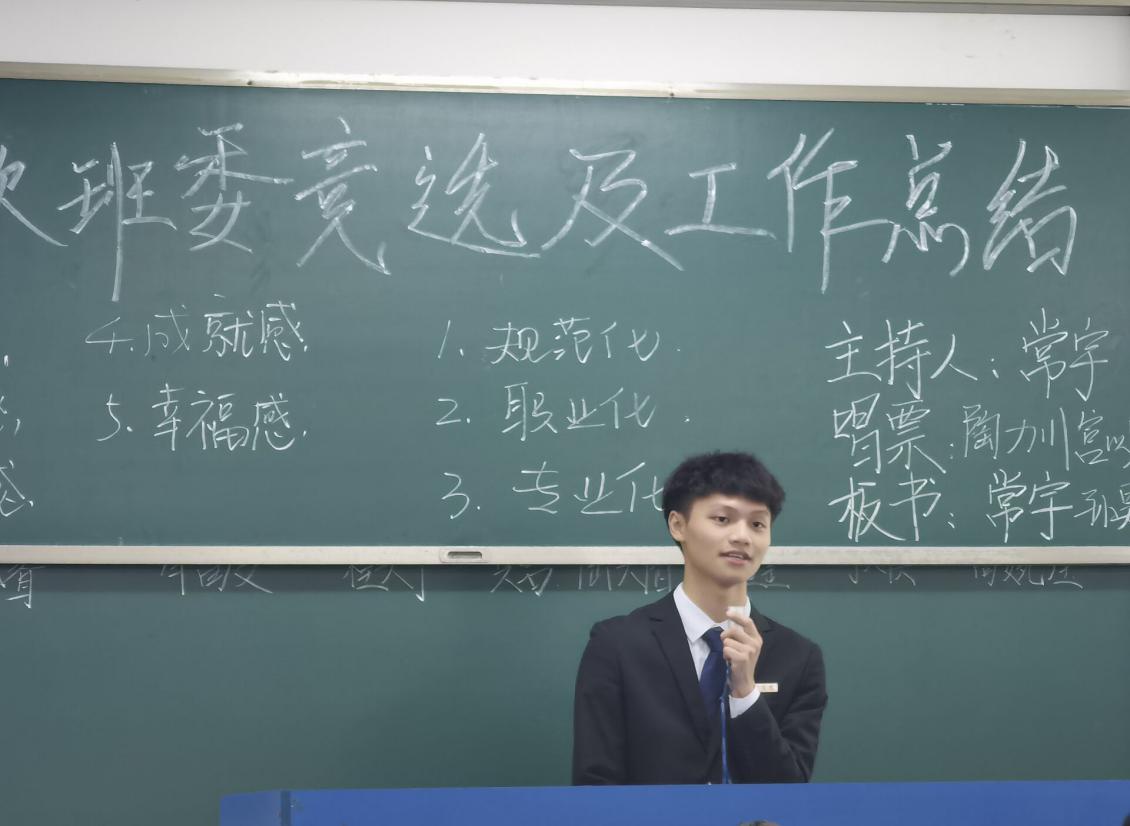 次班委竞选及工作总结
4.成就感.
5.幸福感.
感.
1.规范化.
2.职业化.
3.专业化
主持人:常宇
唱票:陶加川宫
板书:常宇